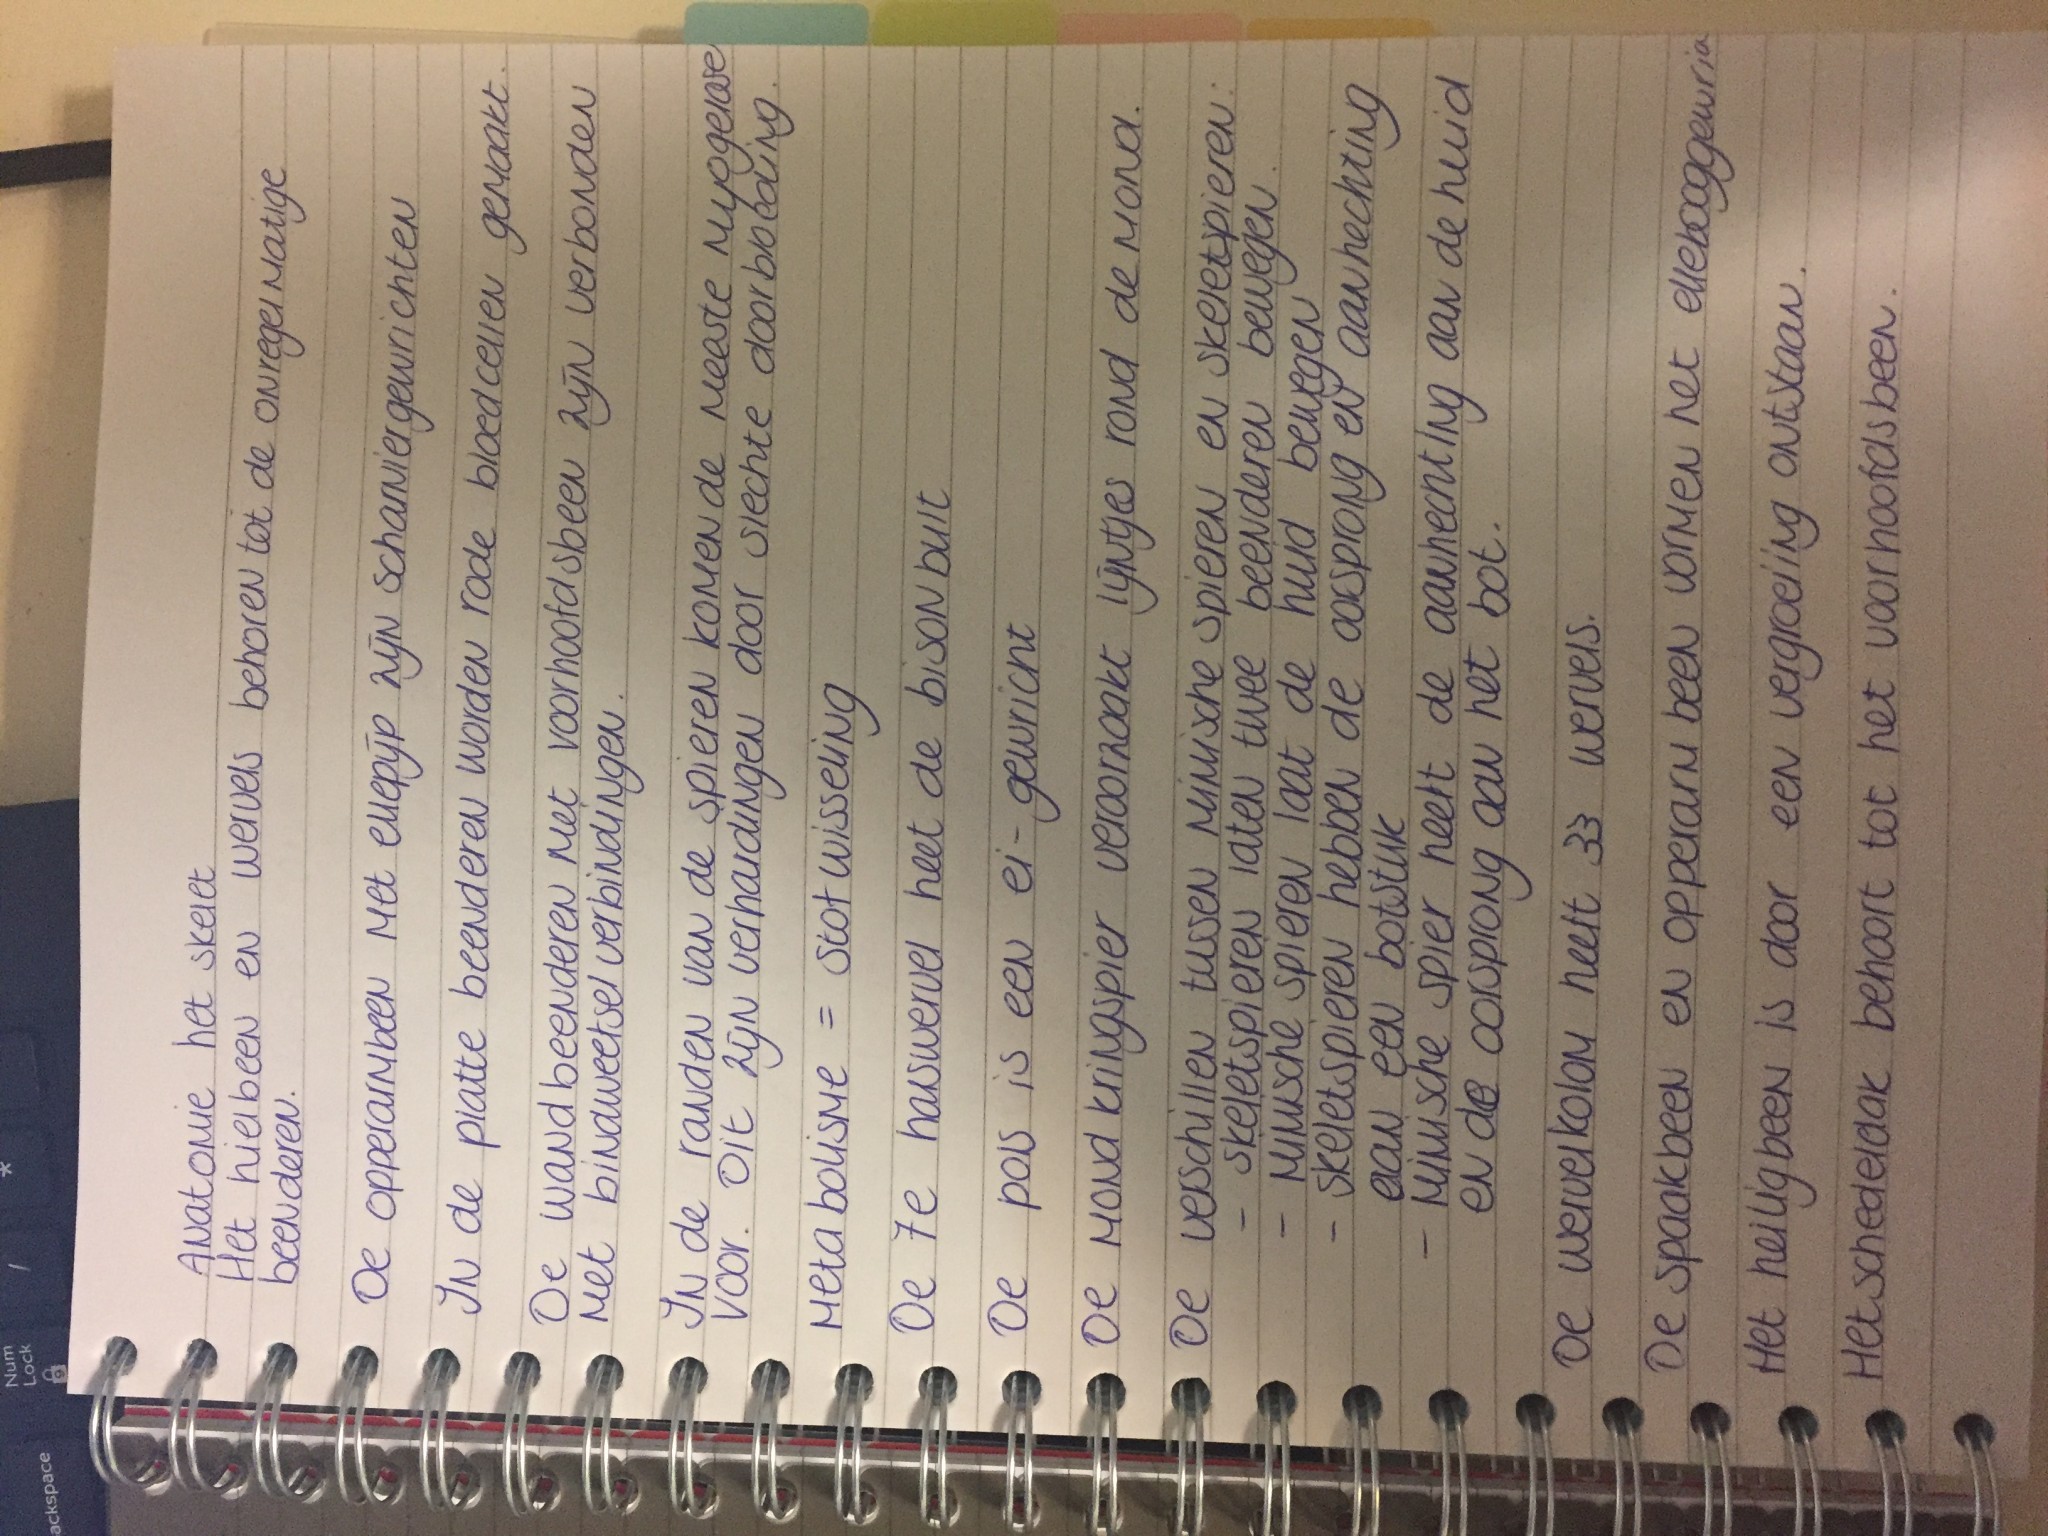 Anatomie het skelet
Het hielbeen en wervels behoren tot de onregelmatige
beenderen.
De opperarmbeen met ellepijp zijn scharniergewrichten
In de platte beenderen worden rode bloedcellen gemaakt.
De wandbeenderen met voorhoofdsbeen zijn verbonden
met bindweefselverbindingen.
In de randen van de spieren komen de meeste myogelose
voor. Dit zijn verhardingen door slechte doorbloeding.
Metabolisme = stofwisseling
De 7e halswervel heet de bisonbult
De pols is een ei-gewricht
De mondkringspier veroorzaakt lijntjes rond de mond.
De verschillen tussen mimische spieren en skeletspieren:
- skeletspieren laten twee beenderen bewegen.
- Mimische spieren laat de huid bewegen
- skeletspieren hebben de oorsprong en aanhechting
aan een botstuk
- Mimische spier heeft de aanhechting aan de huid
en de oorsprong aan het bot.
De wervelkolom heeft 33 wervels.
De spaakbeen en opperarmbeen vormen het ellebooggewricht
Het heiligbeen is door een vergroeiing ontstaan.
Het schedeldak behoort tot het voorhoofdsbeen.
ackspace
Num
Lock
/
*